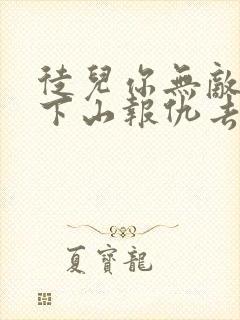 徒兒你無敵
下山報仇去
夏寶龍